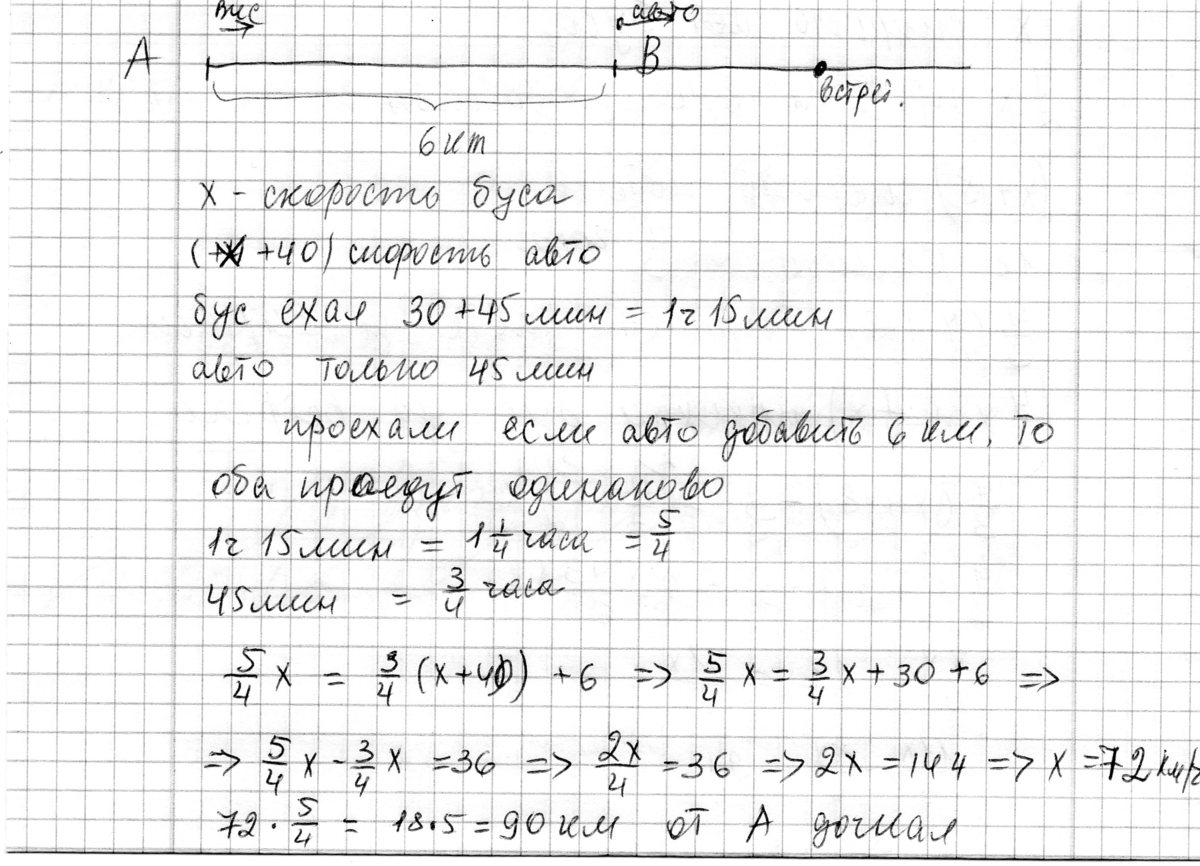 бус авто
A B
встрет.
6 км
x - скорость буса
(x +40) скорость авто
бус ехал 30+45 мин = 1ч 15 мин
авто только 45 мин
проехали если авто добавить 6 км, то
оба проедут одинаково
1ч 15 мин = 1 1/4 часа = 5/4
45 мин = 3/4 часа
5/4 x = 3/4 (x+40) +6 => 5/4 x = 3/4 x + 30 + 6 =>
=> 5/4 x - 3/4 x = 36 => 2x/4 = 36 => 2x = 144 => x = 72 км/ч
72 · 5/4 = 18·5 = 90 км от A